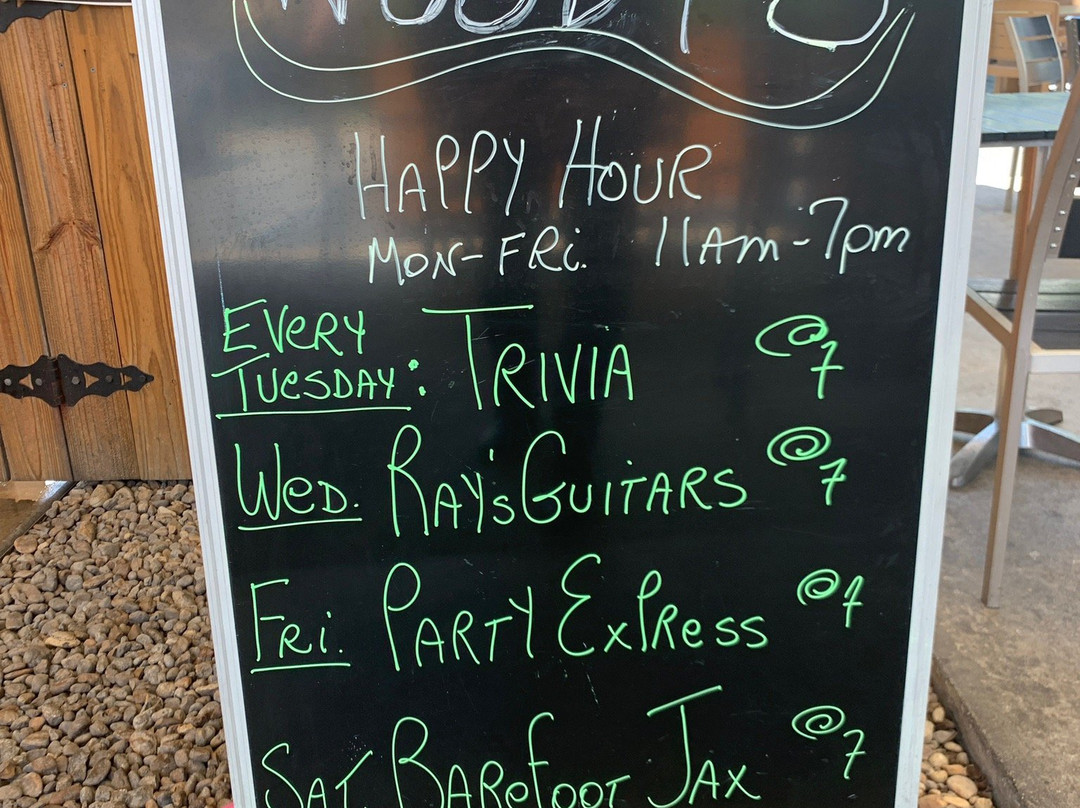 WOODY'S
HAPPY HOUR
MON-FRi. 11AM-7pm
EVERY
TUESDAY: TRIVIA @7
WED. RAY'S GUITARS @7
FRi. PARTY EXPRESS @7
SAT BAREFOOT JAX @7